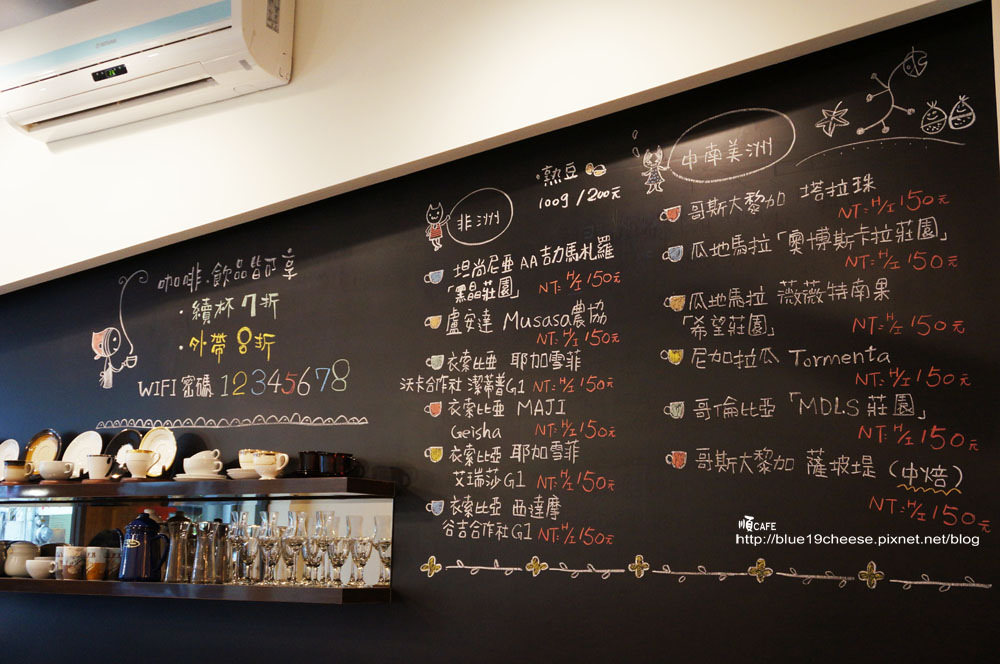 咖啡.飲品皆可享
·續杯 7折
·外帶 8折
WIFI 密碼 12345678
熟豆
100g /200元
非洲
坦尚尼亞 AA 吉力馬札羅
「黑晶莊園」 NT:H/I 150元
盧安達 Musasa農協
NT:H/I 150元
衣索比亞 耶加雪菲
沃卡合作社 潔蒂普G1 NT:H/I 150元
衣索比亞 MAJI
Geisha NT:H/I 150元
衣索比亞 耶加雪菲
艾瑞莎G1 NT:H/I 150元
衣索比亞 西達摩
谷吉合作社G1 NT:H/I 150元
中南美洲
哥斯大黎加 塔拉珠
NT:H/I 150元
瓜地馬拉「奧博斯卡拉莊園」
NT:H/I 150元
瓜地馬拉 薇薇特南果
「希望莊園」 NT:H/I 150元
尼加拉瓜 Tormenta
NT:H/I 150元
哥倫比亞「MDLS莊園」
NT:H/I 150元
哥斯大黎加 薩坡堤 (中焙)
NT:H/I 150元
順CAFE
http://blue19cheese.pixnet.net/blog